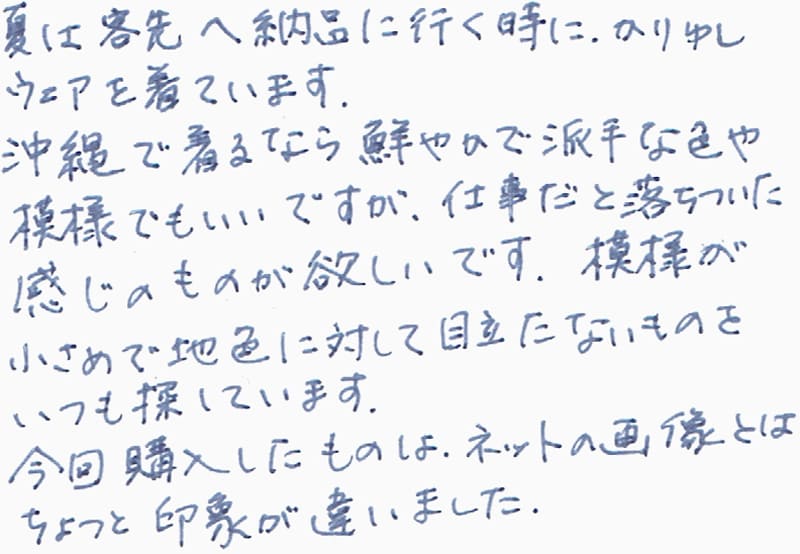 夏は客先へ納品に行く時に、かりゆし
ウェアを着ています。
沖縄で着るなら鮮やかで派手な色や
模様でもいいですが、仕事だと落ちついた
感じのものが欲しいです。模様が
小さめで地色に対して目立たないものを
いつも探しています。
今回購入したものは、ネットの画像とは
ちょっと印象が違いました。